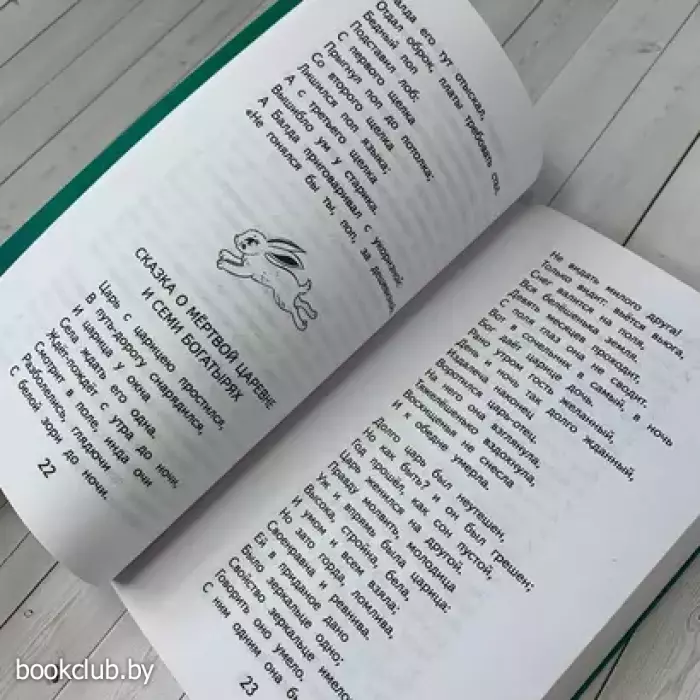 алда его тут отыскал,
Отдал оброк, платы требовать стал.
Бедный поп
Подставил лоб:
С первого щелка
Прыгнул поп до потолка;
Со второго щелка
Лишился поп языка;
А с третьего щелка
Вышибло ум у старика.
А Балда приговаривал с укоризной:
«Не гонялся бы ты, поп, за
СКАЗКА О МЁРТВОЙ ЦАРЕВНЕ
И СЕМИ БОГАТЫРЯХ
Царь с царицею простился,
В путь-дорогу снарядился,
И царица у окна
Села ждать его одна.
Ждёт-пождёт с утра до ночи,
Смотрит в поле, инда очи
Разболелись глядючи
С белой зори до ночи.
22
Не видать милого друга!
Только видит: вьётся вьюга,
Снег валится на поля,
Вся белёшенька земля.
Девять месяцев проходит,
С поля глаз она не сводит.
Вот в сочельник в самый, в ночь
Бог даёт царице дочь.
Рано утром гость желанный,
День и ночь так долго жданный,
Издалеча наконец
Воротился царь-отец.
На него она взглянула,
Тяжелёшенько вздохнула,
Восхищенья не снесла
И к обедне умерла.
Долго царь был неутешен,
Но как быть? и он был грешен;
Год прошёл, как сон пустой,
Царь женился на другой.
Правду молвить, молодица
Уж и впрямь была царица:
Высока, стройна, бела,
И умом и всем взяла;
Но зато горда, ломлива,
Своенравна и ревнива.
Ей в приданое дано
Было зеркальце одно;
Свойство зеркальце имело:
Говорить оно умело.
С ним одним она б
23
bookclub.by